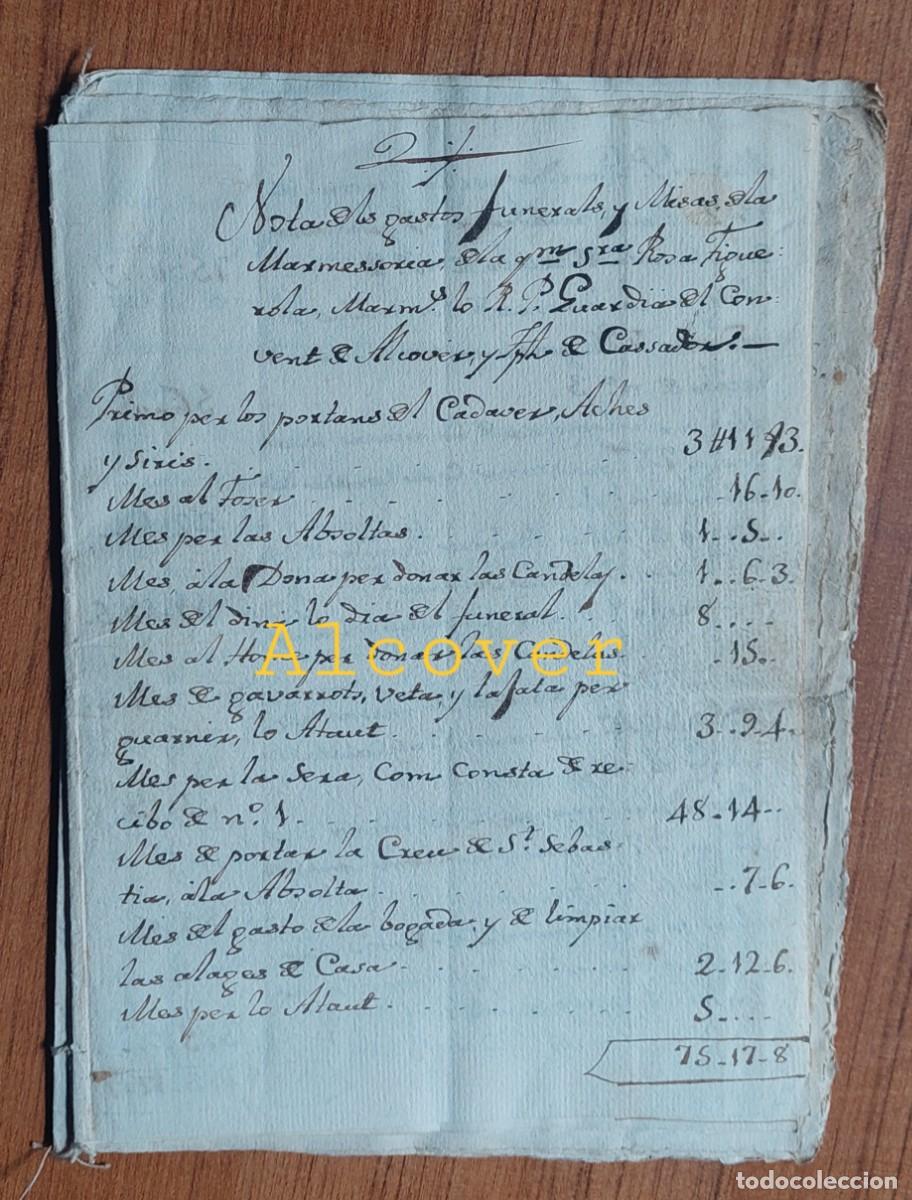 Nota dels gastos funerals, y Misas, dela
Marmessoria, dela qm Sra Rosa Figue:
rola, Marms. lo R. P. Guardia del Con:
vent de Alcover, y Iph de Cassador. —
Primo per los portans del Cadaver, Aches
y Siris. 3 # 11 # 3.
Mes al Foser 16-10.
Mes per las Absoltas. 1..5..
Mes, à la Dona per donar las Candelas. 1..6-3.
Mes del diné lo dia del funeral. 8....
Mes al Home per donar las Candelas. .15.
Mes de gavarrots, veta, y lafata per
guarnir, lo Ataut. 3..9-4.
Mes per la Sera, Com Consta de re:
cibo de nº. 1. 48-14..
Mes de portar la Creu de St. Sebas:
tia, àla Absolta. -.7-6.
Mes del gasto dela bogada, y de limpiar
las alages de Casa. 2-12-6.
Mes per lo Ataut. 5....
75-17-8
Alcover
todocoleccion